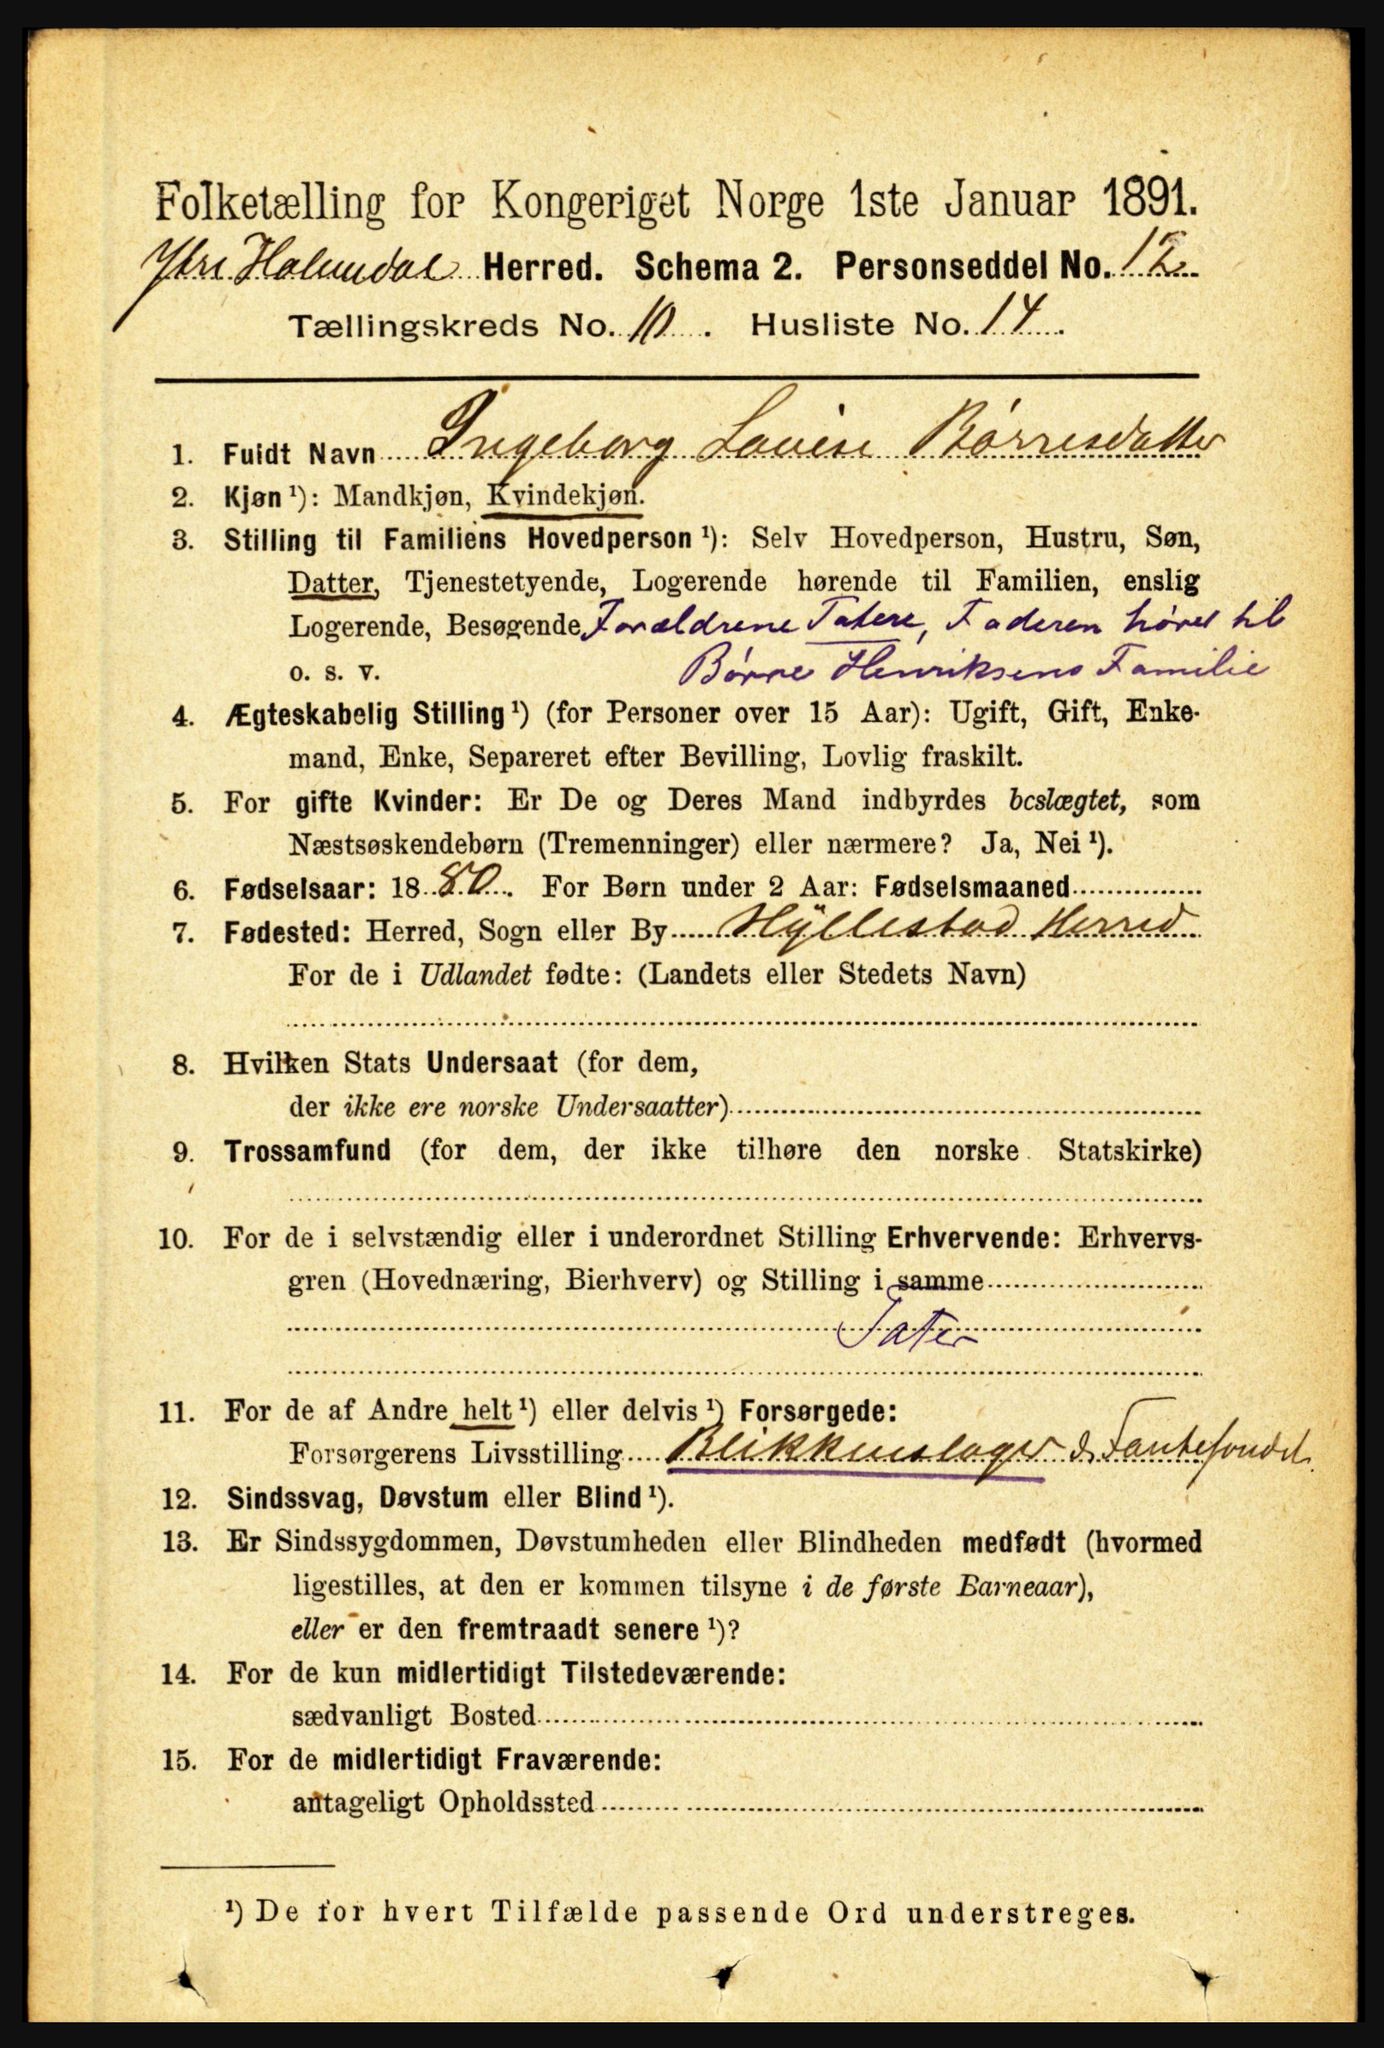 Folketælling for Kongeriget Norge 1ste Januar 1891.
Ytre Holmedal Herred. Schema 2. Personseddel No. 12
Tællingskreds No. 10. Husliste No. 14.
1. Fuldt Navn Ingeborg Lovise Børresdatter
2. Kjøn ¹): Mandkjøn, Kvindekjøn.
3. Stilling til Familiens Hovedperson ¹): Selv Hovedperson, Hustru, Søn,
Datter, Tjenestetyende, Logerende hørende til Familien, enslig
Logerende, Besøgende Forældrene Tatere, Faderen hører til
o. s. v. Børre Henriksens Familie
4. Ægteskabelig Stilling ¹) (for Personer over 15 Aar): Ugift, Gift, Enke-
mand, Enke, Separeret efter Bevilling, Lovlig fraskilt.
5. For gifte Kvinder: Er De og Deres Mand indbyrdes beslægtet, som
Næstsøskendebørn (Tremenninger) eller nærmere? Ja, Nei ¹).
6. Fødselsaar: 1880. For Børn under 2 Aar: Fødselsmaaned
7. Fødested: Herred, Sogn eller By Hyllestad Herred
For de i Udlandet fødte: (Landets eller Stedets Navn)
8. Hvilken Stats Undersaat (for dem,
der ikke ere norske Undersaatter)
9. Trossamfund (for dem, der ikke tilhøre den norske Statskirke)
10. For de i selvstændig eller i underordnet Stilling Erhvervende: Erhvervs-
gren (Hovednæring, Bierhverv) og Stilling i samme
Tater
11. For de af Andre helt ¹) eller delvis ¹) Forsørgede:
Forsørgerens Livsstilling Blikkenslager & Fantefondet
12. Sindssvag, Døvstum eller Blind ¹).
13. Er Sindssygdommen, Døvstumheden eller Blindheden medfødt (hvormed
ligestilles, at den er kommen tilsyne i de første Barneaar),
eller er den fremtraadt senere ¹)?
14. For de kun midlertidigt Tilstedeværende:
sædvanligt Bosted
15. For de midlertidigt Fraværende:
antageligt Opholdssted
¹) De for hvert Tilfælde passende Ord understreges.